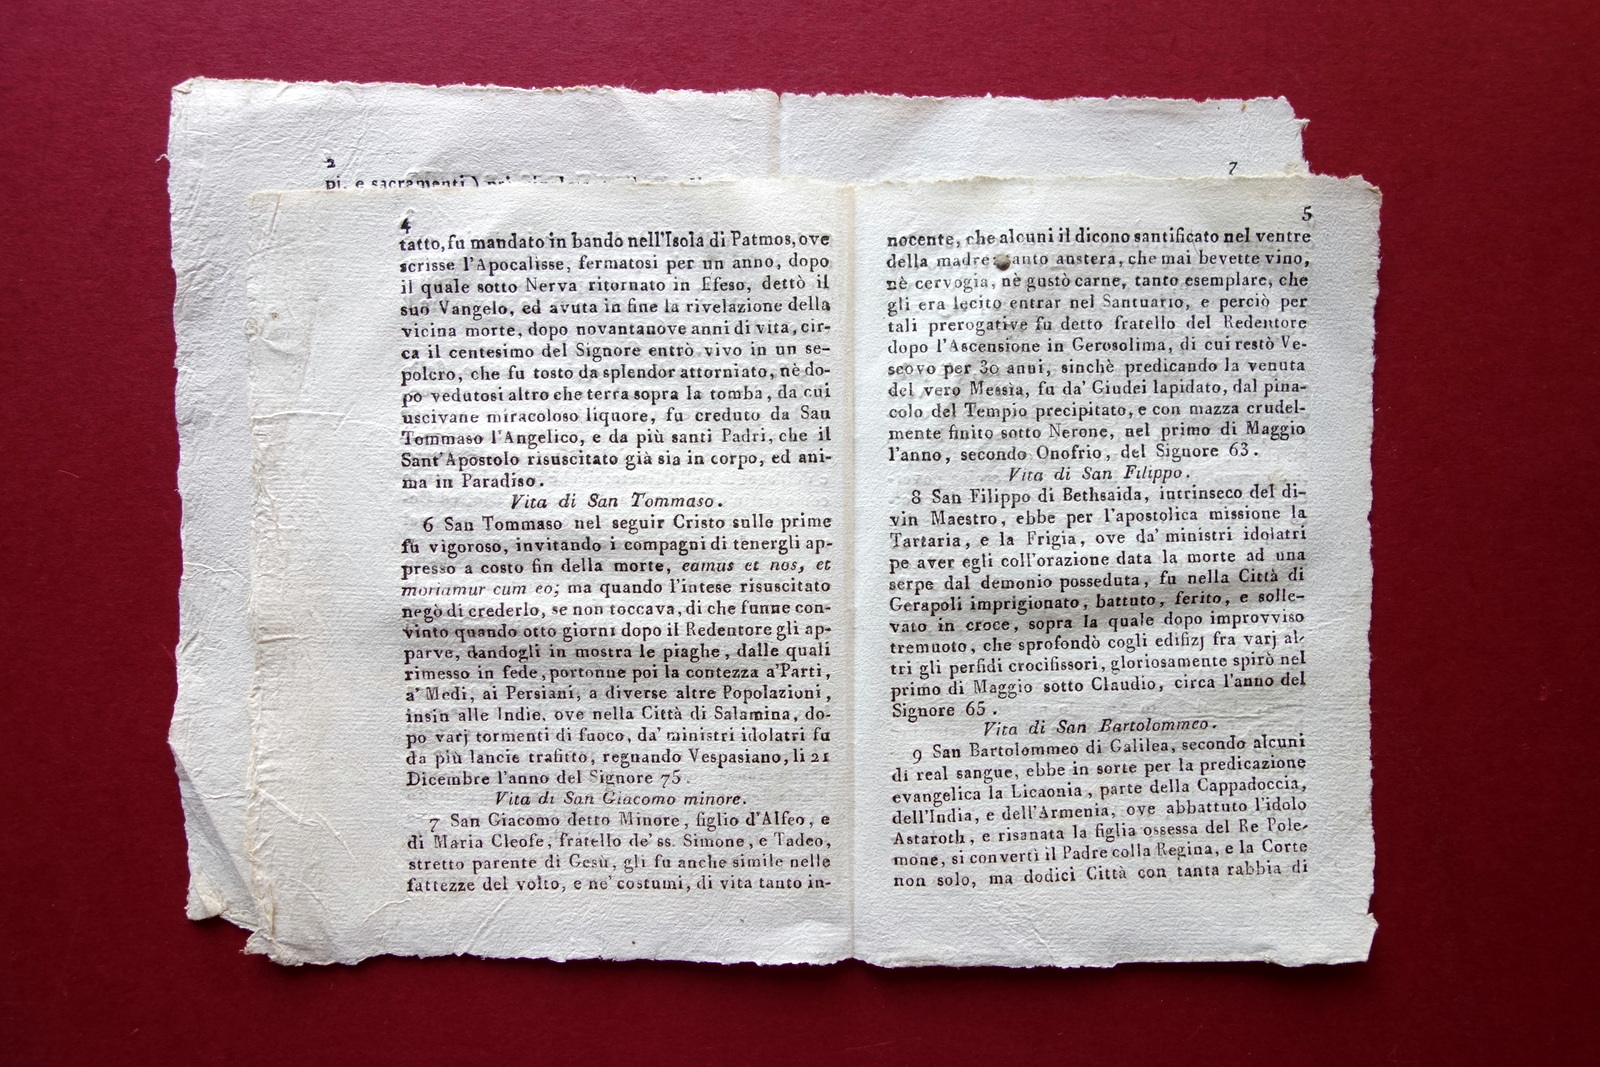 2
7
pi, e sacramenti)
4
tatto, fu mandato in bando nell'Isola di Patmos, ove
scrisse l'Apocalisse, fermatosi per un anno, dopo
il quale sotto Nerva ritornato in Efeso, dettò il
suo Vangelo, ed avuta in fine la rivelazione della
vicina morte, dopo novantanove anni di vita, cir-
ca il centesimo del Signore entrò vivo in un se-
polcro, che fu tosto da splendor attorniato, nè do-
po vedutosi altro che terra sopra la tomba, da cui
uscivane miracoloso liquore, fu creduto da San
Tommaso l'Angelico, e da più santi Padri, che il
Sant'Apostolo risuscitato già sia in corpo, ed ani-
ma in Paradiso.
Vita di San Tommaso.
6 San Tommaso nel seguir Cristo sulle prime
fu vigoroso, invitando i compagni di tenergli ap-
presso a costo fin della morte, eamus et nos, et
moriamur cum eo; ma quando l'intese risuscitato
negò di crederlo, se non toccava, di che funne con-
vinto quando otto giorni dopo il Redentore gli ap-
parve, dandogli in mostra le piaghe, dalle quali
rimesso in fede, portonne poi la contezza a'Parti,
a' Medi, ai Persiani, a diverse altre Popolazioni,
insin alle Indie, ove nella Città di Salamina, do-
po varj tormenti di fuoco, da' ministri idolatri fu
da più lancie trafitto, regnando Vespasiano, li 21
Dicembre l'anno del Signore 75.
Vita di San Giacomo minore.
7 San Giacomo detto Minore, figlio d'Alfeo, e
di Maria Cleofe, fratello de' ss. Simone, e Tadeo,
stretto parente di Gesù, gli fu anche simile nelle
fattezze del volto, e ne' costumi, di vita tanto in-
5
nocente, che alcuni il dicono santificato nel ventre
della madre: tanto austera, che mai bevette vino,
nè cervogia, nè gustò carne, tanto esemplare, che
gli era lecito entrar nel Santuario, e perciò per
tali prerogative fu detto fratello del Redentore
dopo l'Ascensione in Gerosolima, di cui restò Ve-
scovo per 30 anni, sinchè predicando la venuta
del vero Messìa, fu da' Giudei lapidato, dal pina-
colo del Tempio precipitato, e con mazza crudel-
mente finito sotto Nerone, nel primo di Maggio
l'anno, secondo Onofrio, del Signore 63.
Vita di San Filippo.
8 San Filippo di Bethsaida, intrinseco del di-
vin Maestro, ebbe per l'apostolica missione la
Tartaria, e la Frigia, ove da' ministri idolatri
pe aver egli coll'orazione data la morte ad una
serpe dal demonio posseduta, fu nella Città di
Gerapoli imprigionato, battuto, ferito, e solle-
vato in croce, sopra la quale dopo improvviso
tremuoto, che sprofondò cogli edifizj fra varj al-
tri gli perfidi crocifissori, gloriosamente spirò nel
primo di Maggio sotto Claudio, circa l'anno del
Signore 65.
Vita di San Bartolommeo.
9 San Bartolommeo di Galilea, secondo alcuni
di real sangue, ebbe in sorte per la predicazione
evangelica la Licaonia, parte della Cappadoccia,
dell'India, e dell'Armenia, ove abbattuto l'idolo
Astaroth, e risanata la figlia ossessa del Re Pole-
mone, si convertì il Padre colla Regina, e la Corte
non solo, ma dodici Città con tanta rabbia di